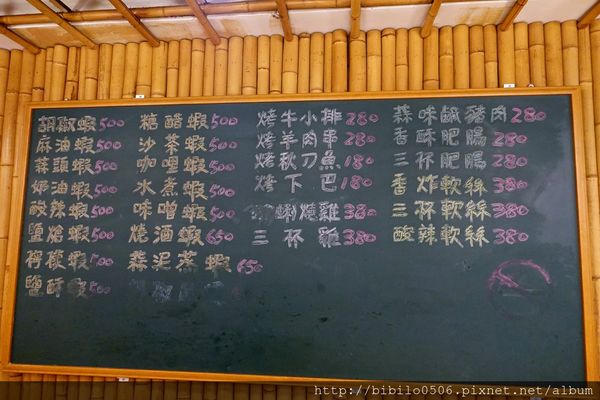 胡椒蝦500
麻油蝦500
蒜頭蝦500
奶油蝦500
酸辣蝦500
鹽焗蝦500
檸檬蝦500
鹽酥蝦500
糖醋蝦500
沙茶蝦500
咖哩蝦500
水煮蝦500
味噌蝦500
燒酒蝦650
蒜泥蒸蝦650
烤牛小排280
烤羊肉串280
烤秋刀魚180
烤下巴180
蜊燒雞380
三杯雞380
蒜味鹹豬肉280
香酥肥腸280
三杯肥腸280
香炸軟絲380
三杯軟絲380
酸辣軟絲380
http://bibilo0506.pixnet.net/album